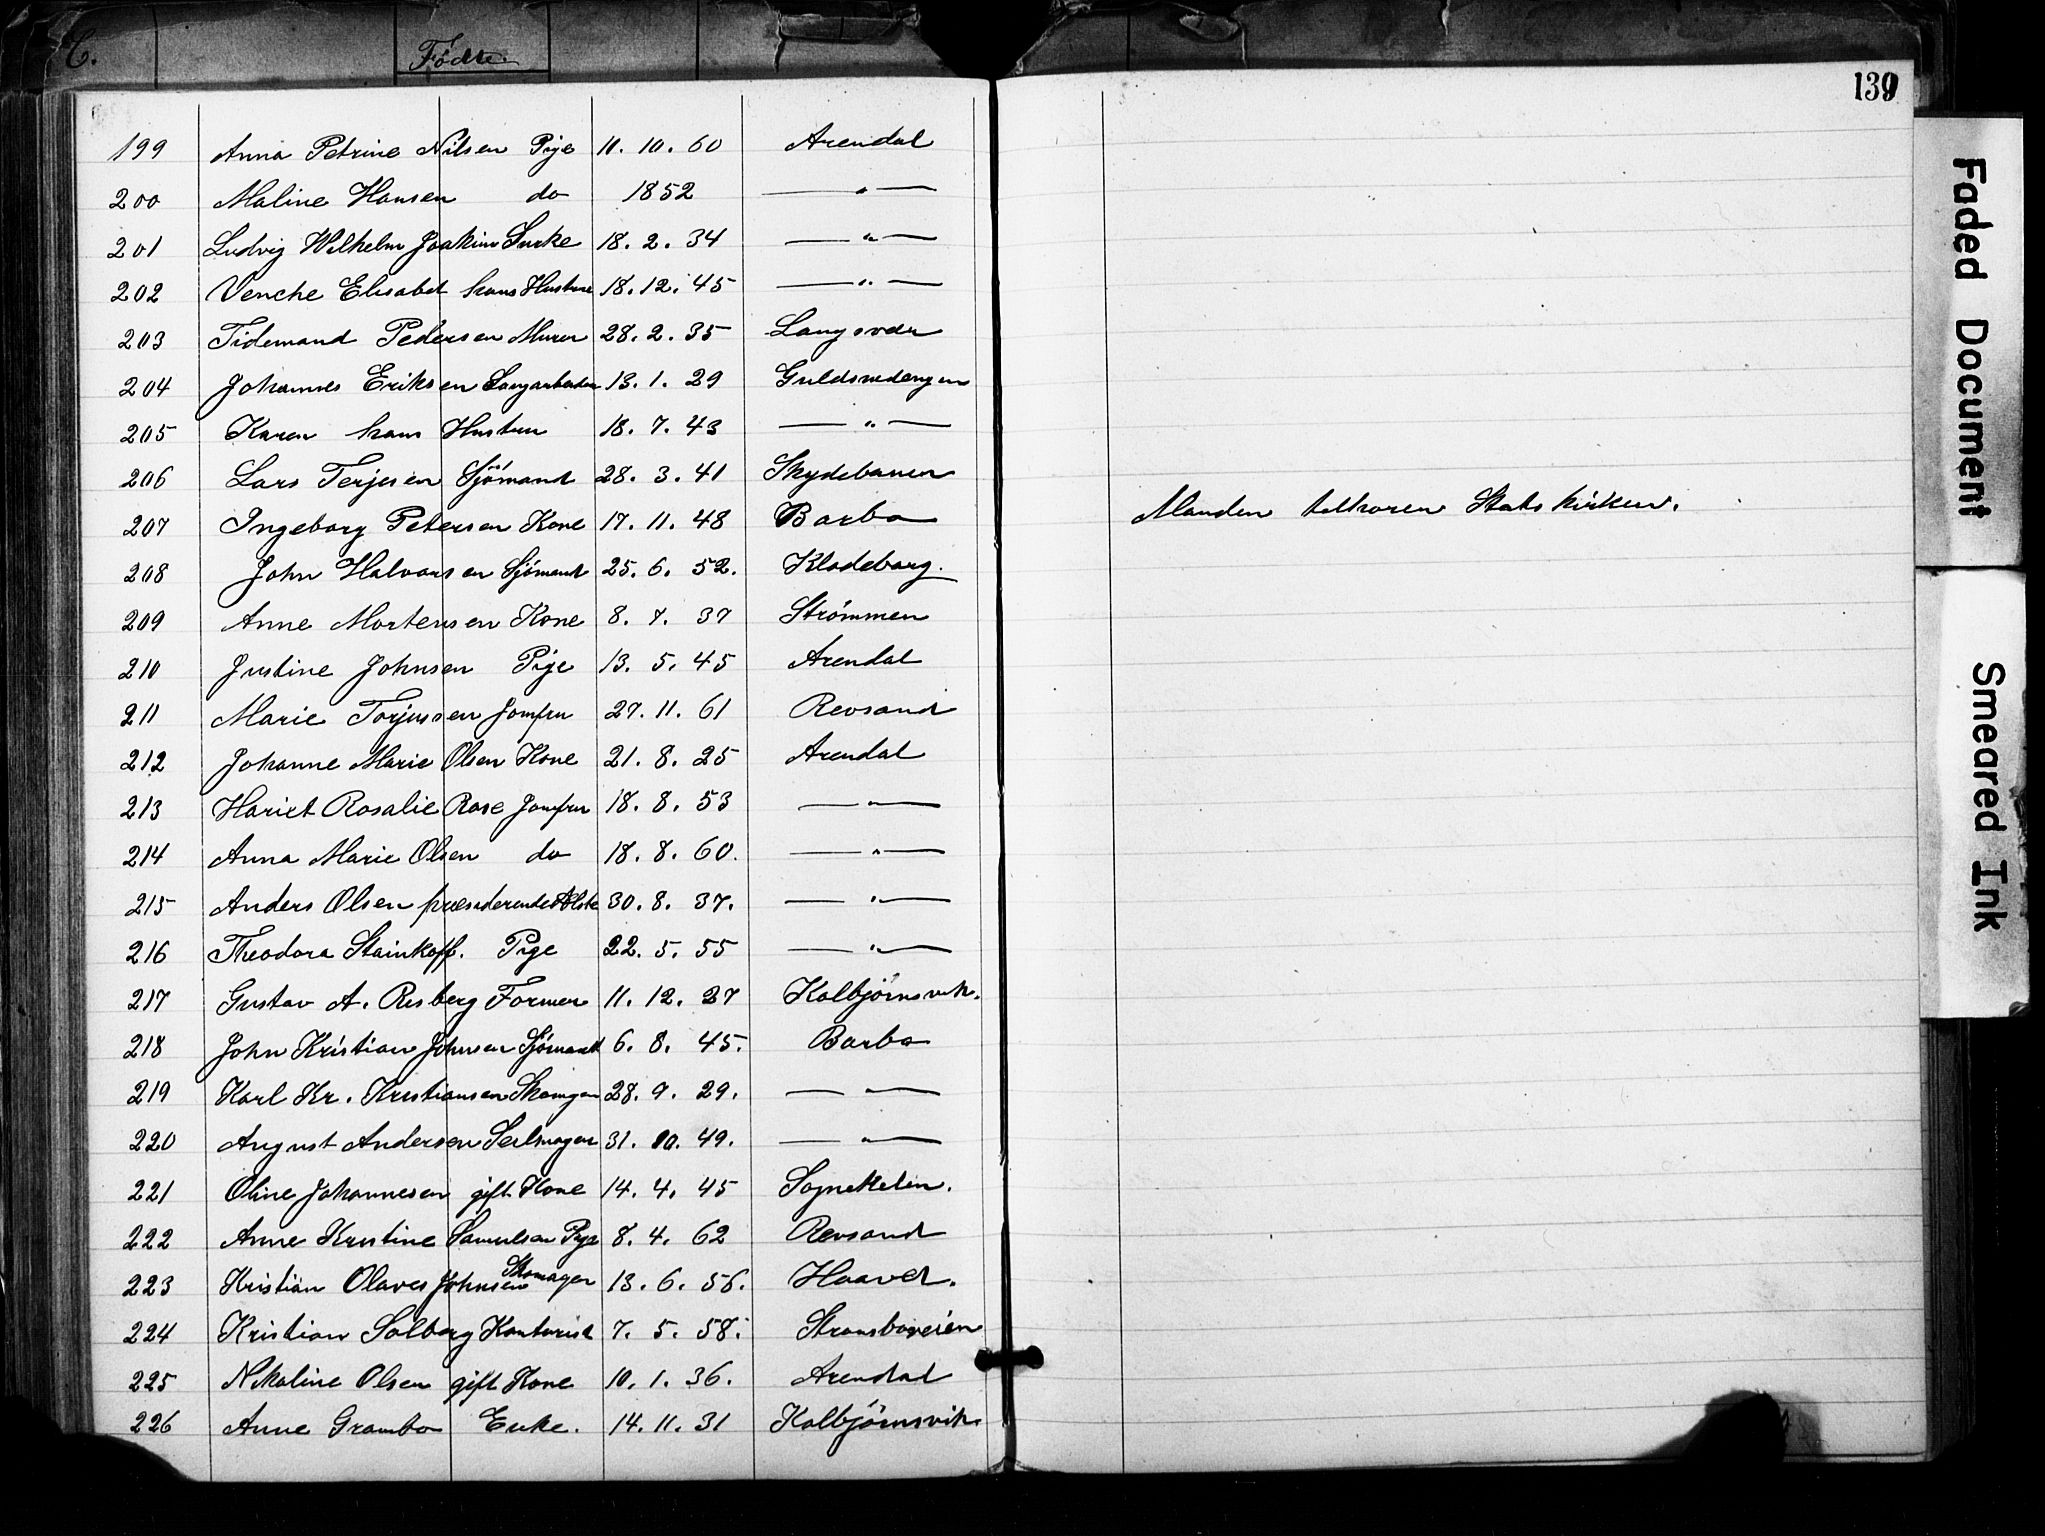 C.
Födte.
139
199 Anna Petrine Nilsen Pige 11. 10. 60 Arendal
200 Maline Hansen do 1852 — " —
201 Ludvig Wilhelm Joakim 18. 2. 34 — " —
202 Venche Elisabet hans Hustru 18. 12. 45 — " —
203 Tidemand Pedersen Murer 28. 2. 35 Langsæer
204 Johannes Eriksen Saugarbeider 13. 1. 29 Guldsmedengen
205 Karen hans Hustru 18. 7. 43 — " —
206 Lars Terjesen Sjömand 28. 3. 41 Skydebanen
207 Ingeborg Petersen Kone 17. 11. 48 Barbo Manden tilhorer Statskirken.
208 John Halvorsen Sjömand 25. 6. 52. Klodeborg.
209 Anne Mortensen Kone 8. 7. 37 Strömmen
210 Justine Johnsen Pige 13. 5. 45 Arendal
211 Marie Torjussen Jomfru 27. 11. 61 Revsand
212 Johanne Marie Olsen Kone 21. 8. 25 Arendal
213 Hariet Rosalie Rose Jomfru 18. 8. 53 — " —
214 Anna Marie Olsen do 18. 8. 60. — " —
215 Anders Olsen præsiderende Ælste 30. 8. 37. — " —
216 Theodora Stainkopf. Pige 22. 5. 55 — " —
217 Gustav A. Risberg Former 11. 12. 37 Kolbjörnsvik.
218 John Kristian Johnsen Sjömand 6. 8. 45. Barbo
219 Karl Kr. Kristiansen Skomger 28. 9. 29. — " —
220 August Andersen Seilmager 31. 10. 49. — " —
221 Oline Johannesen gift Kone 14. 4. 45 Sognekelen.
222 Anne Kristine Samuelsen Pige 8. 4. 62 Revsand
223 Kristian Olaves Johnsen Skomager 13. 6. 56. Haavet.
224 Kristian Solberg Kontorist 7. 5. 58. Stromsboveien
225 Nikoline Olsen gift Kone 10. 1. 36. Arendal
226 Anne Grambo Enke. 14. 11. 31 Kolbjörnsvik
Faded Document
Smeared Ink